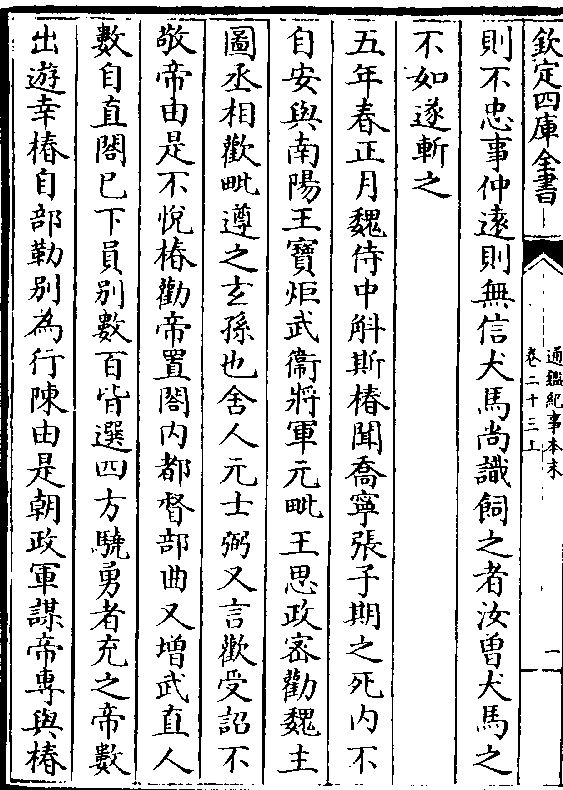 欽定四庫全書
通鑑紀事本末
卷二十三上
二
則不忠事仲遠則無信犬馬尚識飼之者汝曾犬馬之
不如遂斬之
五年春正月魏侍中斛斯椿聞喬寧張子期之死内不
自安與南陽王寶炬武衞將軍元毗王思政密勸魏主
圖丞相歡毗遵之𤣥孫也舍人元士弼又言歡受詔不
敬帝由是不悅椿勸帝置閤内都督部曲又增武直人
數自直閤已下員别數百皆選四方驍勇者充之帝數
出遊幸椿自部勒别為行陳由是朝政軍謀帝專與椿